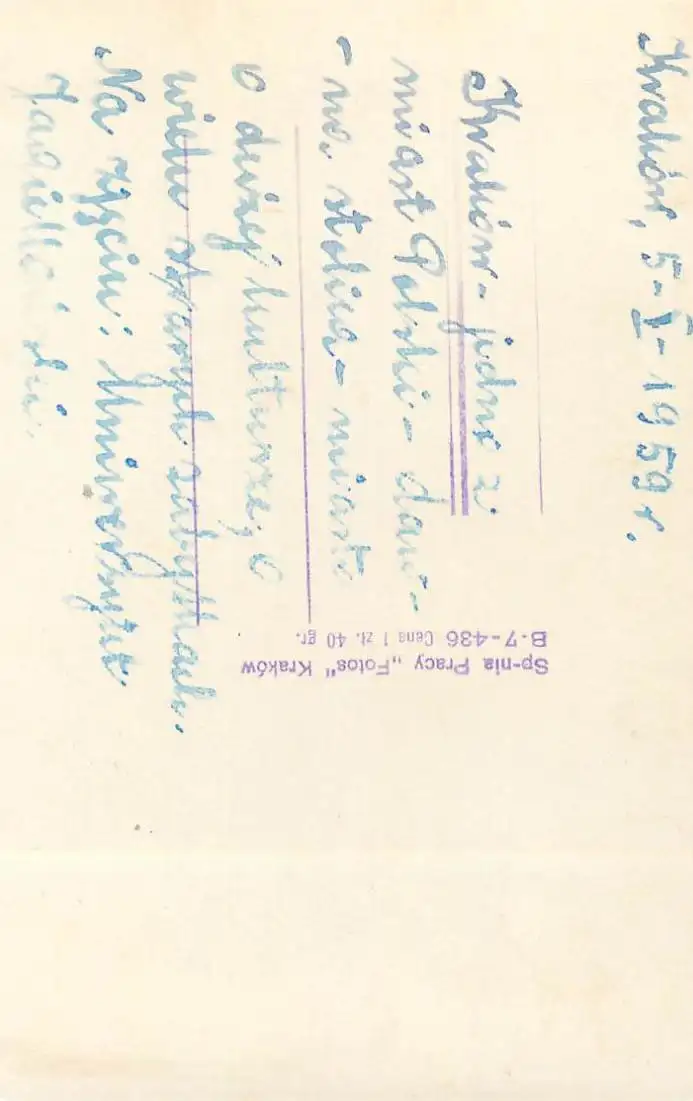 Kraków, 5-I-1959 r.
Kraków - jedno z
miast Polski - daw-
- na stolica - miasto
o dużej kulturze, o
wielu starych zabytkach.
Na zdjęciu: Uniwersytet
Jagielloński.
Sp-nia Pracy „Fotos" Kraków
B-7-436 Cena 1 zł. 40 gr.